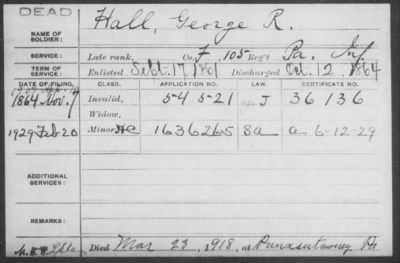 DEAD
NAME OF SOLDIER: Hall, George R.
SERVICE: Late rank, Co. F, 105 Reg't Pa. Inf
TERM OF SERVICE: Enlisted Sept. 17, 1861 Discharged Oct. 12, 1864
DATE OF FILING. CLASS. APPLICATION NO. LAW. CERTIFICATE NO.
1864 Nov. 7 Invalid, 54 521 J 36 136
Widow,
1929 Feb 20 Minor HC 1636265 8a a 6-12-29
ADDITIONAL SERVICES:
REMARKS:
Died Mar 23, 1918, at Punxsutawney Pa